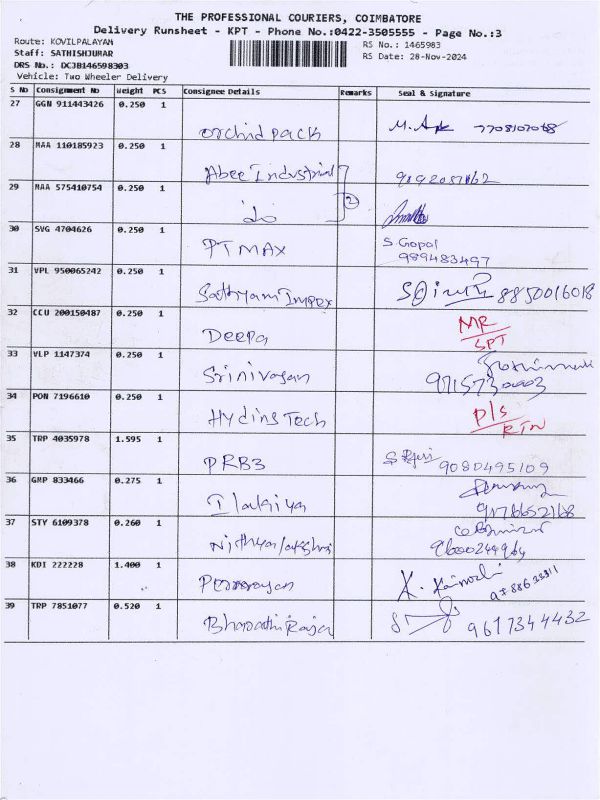 THE PROFESSIONAL COURIERS, COIMBATORE
Delivery Runsheet - KPT - Phone No.:0422-3505555 - Page No.:3
Route: KOVILPALAYAM
RS No.: 1465983
Staff: SATHISHJUMAR
RS Date: 28-Nov-2024
DRS No.: DCJB146598303
Vehicle: Two Wheeler Delivery
S No Consignment No Weight PCS Consignee Details Remarks Seal & Signature
27 GGN 911443426 0.250 1
Orchid pack 7708107068
28 MAA 110185923 0.250 1
Abee Industrial
29 MAA 575410754 0.250 1
do 2
30 SVG 4704626 0.250 1
PTMAX S Gopal
989483497
31 VPL 950065242 0.250 1
Sathyam Impex 8850016018
32 CCU 200150487 0.250 1
Deepa MR
SPT
33 VLP 1147374 0.250 1
Srinivasan
34 PON 7196610 0.250 1
Hydins Tech P/S
RTN
35 TRP 4035978 1.595 1
PRB3 9080495109
36 GMP 833466 0.275 1
Ilakiya
37 STY 6109378 0.260 1
Nithyalakshmi 9600244964
38 KDI 222228 1.400 1
39 TRP 7851077 0.520 1
BharathiRaja 9617344432